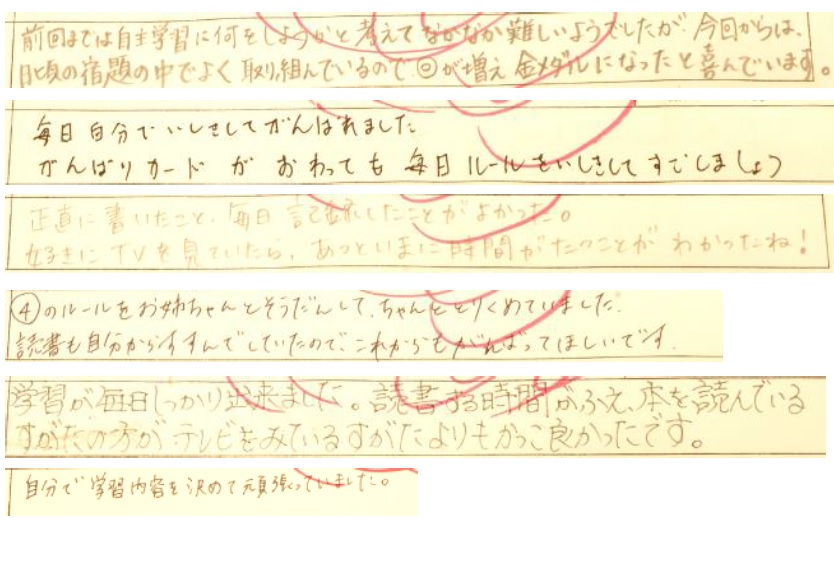 前回までは自主学習に何をしようかと考えてなかなか難しいようでしたが、今回からは、
日頃の宿題の中でよく取り組んでいるので◎が増え金メダルになったと喜んでいます。
毎日自分でいしきしてがんばれました
がんばりカードがおわっても毎日ルールをいしきしてすごしましょう
正直に書いたこと、毎日記録したことがよかった。
好きにTVを見ていたら、あっといまに時間がたつことがわかったね!
④のルールをお姉ちゃんとそうだんして、ちゃんととりくめていました。
読書も自分からすすんでしていたので、これからもがんばってほしいです。
学習が毎日しっかり出来ました。読書する時間がふえ、本を読んでいる
すがたの方がテレビをみているすがたよりもかっこ良かったです。
自分で学習内容を決めて頑張っていました。